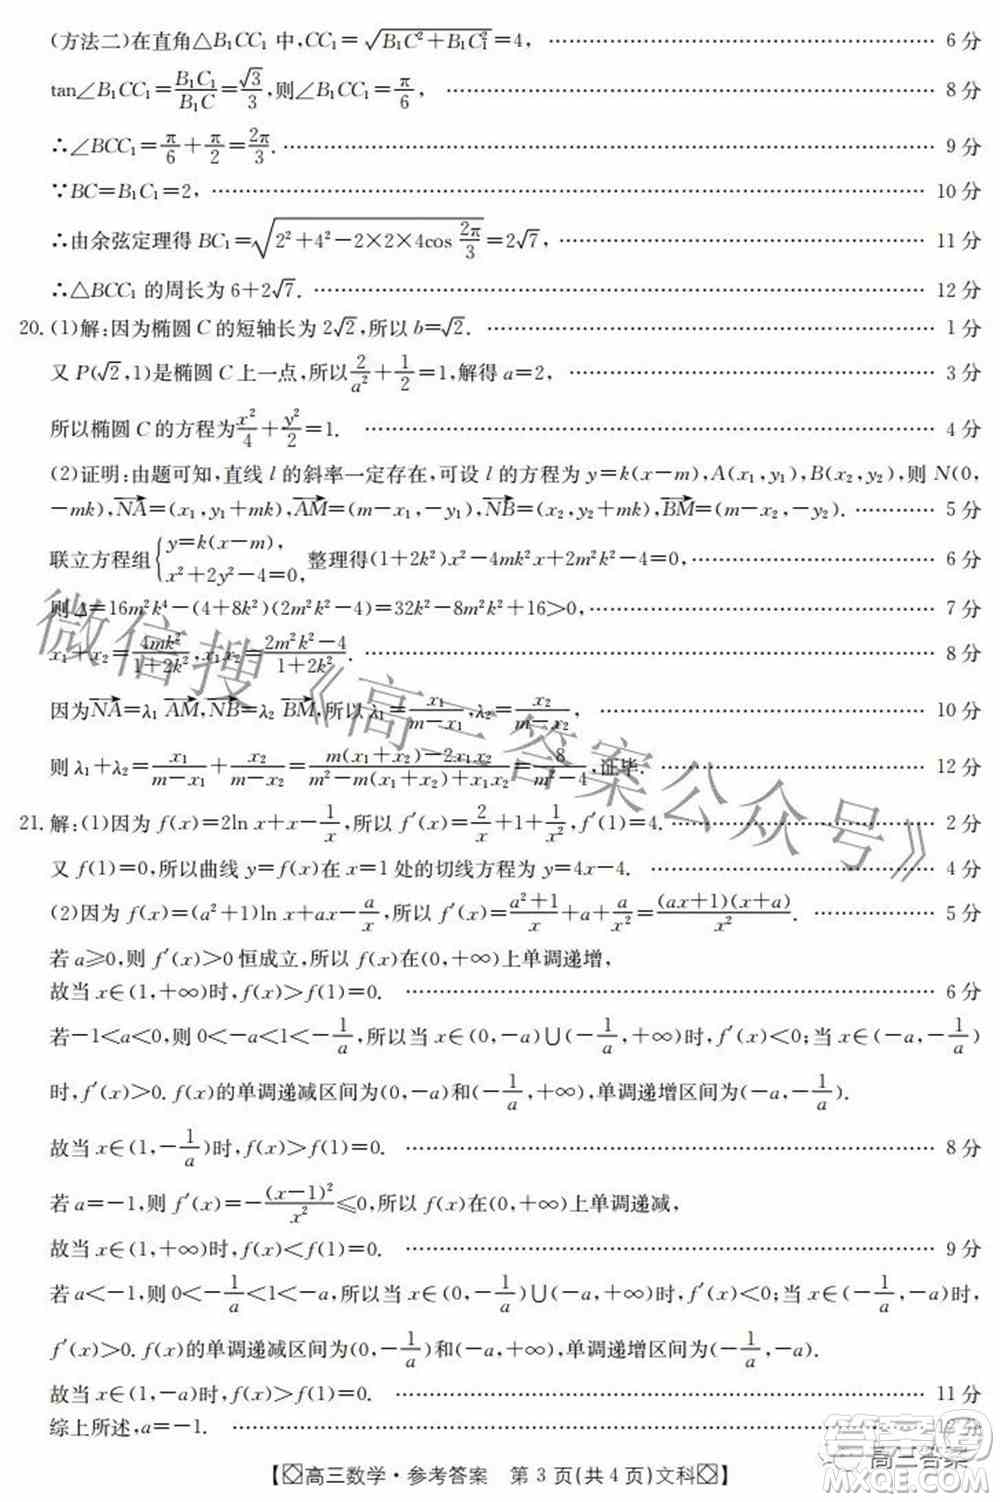 (方法二)在直角△B₁CC₁ 中,CC₁=√(B₁C²+B₁C₁²)=4, …… 6 分
tan∠B₁CC₁=B₁C₁/B₁C=√3/3,则∠B₁CC₁=π/6, …… 8 分
∴∠BCC₁=π/6+π/2=2π/3. …… 9 分
∵BC=B₁C₁=2, …… 10 分
∴由余弦定理得 BC₁=√(2²+4²−2×2×4cos 2π/3)=2√7, …… 11 分
∴△BCC₁ 的周长为 6+2√7. …… 12 分
20. (1)解:因为椭圆 C 的短轴长为 2√2,所以 b=√2. …… 1 分
又 P(√2,1)是椭圆 C 上一点,所以2/a²+1/2=1,解得 a=2, …… 3 分
所以椭圆 C 的方程为x²/4+y²/2=1. …… 4 分
(2)证明:由题可知,直线 l 的斜率一定存在,可设 l 的方程为 y=k(x−m),A(x₁,y₁),B(x₂,y₂),则 N(0,
−mk),NA→=(x₁,y₁+mk),AM→=(m−x₁,−y₁),NB→=(x₂,y₂+mk),BM→=(m−x₂,−y₂). …… 5 分
联立方程组{y=k(x−m), x²+2y²−4=0, 整理得(1+2k²)x²−4mk²x+2m²k²−4=0, …… 6 分
则 Δ=16m²k⁴−(4+8k²)(2m²k²−4)=32k²−8m²k²+16>0, …… 7 分
x₁+x₂=4mk²/(1+2k²),x₁x₂=(2m²k²−4)/(1+2k²). …… 8 分
因为NA→=λ₁ AM→,NB→=λ₂ BM→,所以 λ₁=x₁/(m−x₁),λ₂=x₂/(m−x₂), …… 10 分
则 λ₁+λ₂=x₁/(m−x₁)+x₂/(m−x₂)=(m(x₁+x₂)−2x₁x₂)/(m²−m(x₁+x₂)+x₁x₂)=8/(m²−4),证毕. …… 12 分
21. 解:(1)因为 f(x)=2ln x+x−1/x,所以 f′(x)=2/x+1+1/x²,f′(1)=4. …… 2 分
又 f(1)=0,所以曲线 y=f(x)在 x=1 处的切线方程为 y=4x−4. …… 4 分
(2)因为 f(x)=(a²+1)ln x+ax−a/x,所以 f′(x)=(a²+1)/x+a+a/x²=(ax+1)(x+a)/x². …… 5 分
若 a≥0,则 f′(x)>0 恒成立,所以 f(x)在(0,+∞)上单调递增,
故当 x∈(1,+∞)时,f(x)>f(1)=0. …… 6 分
若−1<a<0,则 0<−a<1<−1/a,所以当 x∈(0,−a)∪(−1/a,+∞)时,f′(x)<0;当 x∈(−a,−1/a)
时,f′(x)>0. f(x)的单调递减区间为(0,−a)和(−1/a,+∞),单调递增区间为(−a,−1/a).
故当 x∈(1,−1/a)时,f(x)>f(1)=0. …… 8 分
若 a=−1,则 f′(x)=−(x−1)²/x²≤0,所以 f(x)在(0,+∞)上单调递减,
故当 x∈(1,+∞)时,f(x)<f(1)=0. …… 9 分
若 a<−1,则 0<−1/a<1<−a,所以当 x∈(0,−1/a)∪(−a,+∞)时,f′(x)<0;当 x∈(−1/a,−a)时,
f′(x)>0. f(x)的单调递减区间为(0,−1/a)和(−a,+∞),单调递增区间为(−1/a,−a).
故当 x∈(1,−a)时,f(x)>f(1)=0. …… 11 分
综上所述,a=−1. …… 12 分
【◇高三数学·参考答案 第 3 页(共 4 页)文科◇】
微信搜《高三答案公众号》
高三答案
答案圈
MXQE.COM